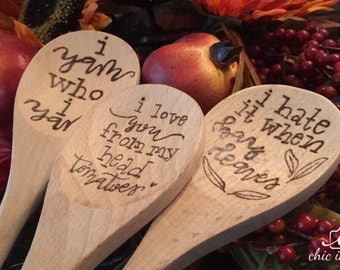 i
yam
who
i
yam
i love
you
from my
head
tomatoes
i hate
it when
bay
leaves
chic